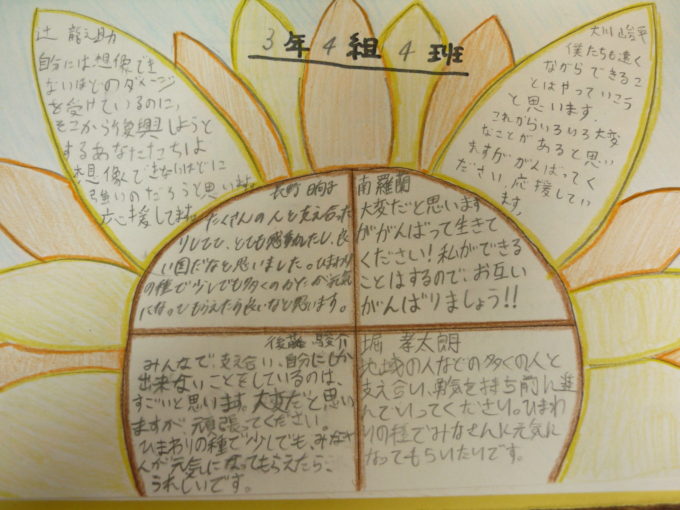 3年4組4班
辻 龍之助
自分には想像でき
ないほどのダメージ
を受けているのに、
そこから復興しようと
するあなたたちは
想像できないほどに
強いのだろうと思います。
応援してます。
大川 峻平
僕たちも遠く
ながらできるこ
とはやっていこう
と思います。
これからいろいろ大変
なことがあると思い
ますががんばってく
ださい。応援してい
ます。
長野
たくさんの人と支え合った
りしてて、とても感動したし、良
い国だなと思いました。ひまわり
の種で少しでも多くのかたが元気
になってもらえたら良いなと思います。
南 羅蘭
大変だと思います
ががんばって生きて
ください!私ができる
ことはするので、お互い
がんばりましょう!!
後藤 駿介
みんなで、支え合い、自分にしか
出来ないことをしているのは、
すごいと思います。大変だと思い
ますが、頑張ってください。
ひまわりの種で少しでも、みなさ
んが元気になってもらえたら、
うれしいです。
堀 孝太朗
地域の人などの多くの人と
支え合い、勇気を持ち前に進
んでいってください。ひまわ
りの種でみなさんに元気に
なってもらいたいです。